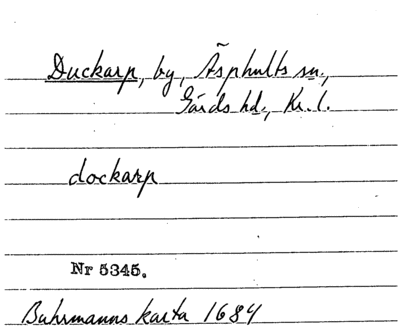 Duckarp, by, Äsphults sn.,
Gärds hd., Kr. l.
dockarp
Nr 5345.
Buhrmanns karta 1684